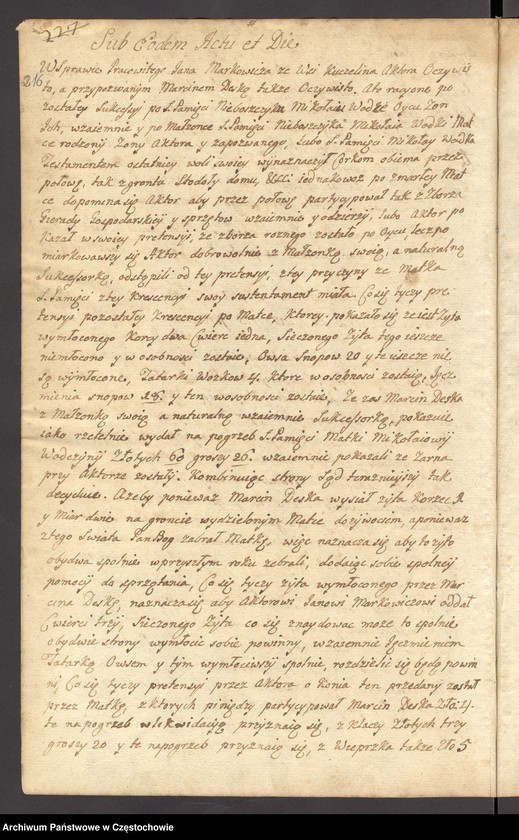 227
Sub Eodem Actu et Die
216
W Sprawie Pracowitego Jana Markowicza ze Wsi Kuczelina Aktora Oczywi
to, a przypozwanym Marcinem Deską także Oczywisto. Ato racyone po
zostałey Sukcessyi po S. Pamięci Nieboszczyku Mikołaiu Wodce Oycu Zon
Ich, wzaiemnie y po Małzonce S. Pamięci Nieboszczyka Mikołaia Wodki Mat
ce rodzony Zony Aktora y zapozwanego, Lubo S. Pamięci Mikołay Wodka
Testamentem ostatniey woli swoiey wyznaczył Corkom obiema przez
połowę, tak z gronta Stodoły domu, &c: iednakowoz po zmarłey Mat
ce dopomna się Aktor aby przez połowę partycypował tak z Zborza
Gierady Gospodarskiey y sprzętow wzaiemnie y odzieży, Lubo Aktor po
kazał w swoiey pretensyi, ze zborza roznego zostało po Oycu lecz po
miarkowawszy się Aktor dobrowolnie z Małzonką swoią, a naturalną
Sukcessorką, odstąpili od tey pretensyi, z tey przyczyny ze Matka
S. Pamięci z tey krescencyi swoy sustentament miała. Co się tyczy pre
tensyi pozostałey Krescencyi po Matce, ktorey pokazało się ze iest Zyta
wymłoconego Korcy dwa Cwierc iedna, Sieczonego Zyta tego ieszcze
niemłocono y w osobności zostaie, Owsa Snopow 20 y te ieszcze nie
są wymłocone, Tatarki Wozkow 4. ktore w osobności zostaią, Jęcz
mienia snopow 18. y ten w osobności zostaie, Ze zas Marcin Deska
z Małzonką swoią a naturalną wzaiemnie Sukcessorką, pokazuie
iako rzetelnie wydał na pogrzeb S. Pamięci Matki Mikołaiowy
Wodczyny Złotych 60 groszy 26. wzaiemnie pokazali ze Zarna
przy Aktorze zostały. Kombinuiąc strony Sąd teraznieyszy tak
decyduie. Azeby poniewaz Marcin Deska wysiał zyta Korzec 1
y Miar dwie na gruncie wydzielonym Matce dozywociem, a poniewaz
z tego Swiata Pan Bog zabrał Matkę, więc naznacza się aby to zyto
obydwa spolnie w przyszłym roku zebrali, dodaiąc sobie spolney
pomocy do sprzątania, Co się tyczy zyta wymłoconego przez Mar
cina Deskę, naznacza się aby Aktorowi Janowi Markowiczowi oddał
Cwierci trzy, Sieczonego Zyta co się znaydowac moze to spolnie
obydwie strony wymłocic sobie powinny, wzaiemnie Jęczmieniem
Tatarką Owsem y tym wymłociwszy spolnie, rozdzielic się będą powin
ni, Co się tyczy pretensyi przez Aktora o Konia ten przedany został
przez Matkę, z ktorych pieniędzy partycypował Marcin Deska Zło: 4.
te na pogrzeb w lokwidacyą przyznaią się, z klaczy Złotych trzy
groszy 20 y te na pogrzeb przyznaią się, z Wieprzka takze Zło 5
Archiwum Państwowe w Częstochowie